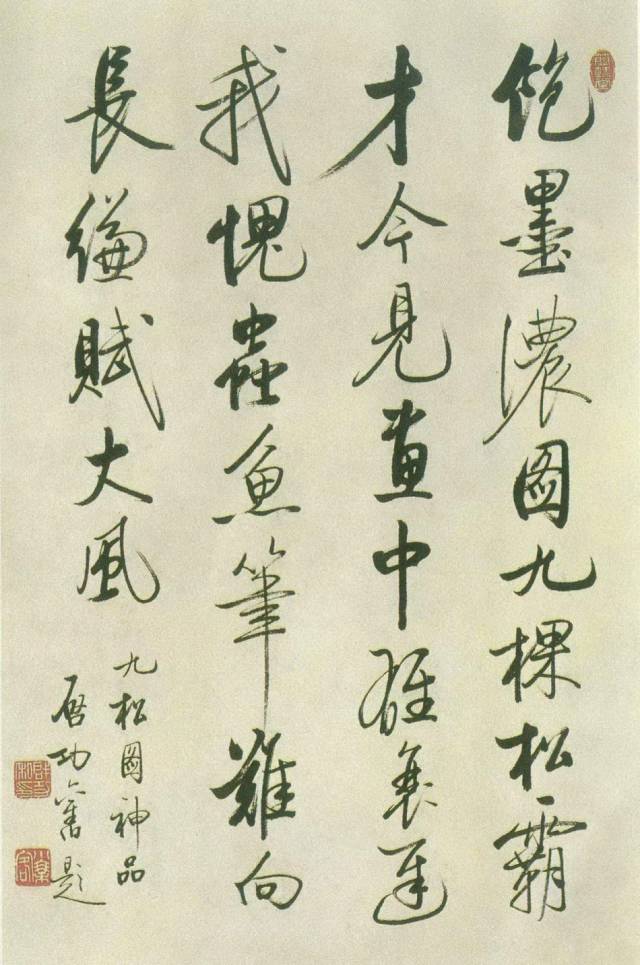 飽墨濃圖九棵松霸
才今見畫中雄衰遲
我愧蟲魚筆難向
長縑賦大風
九松圖神品
启功舊題